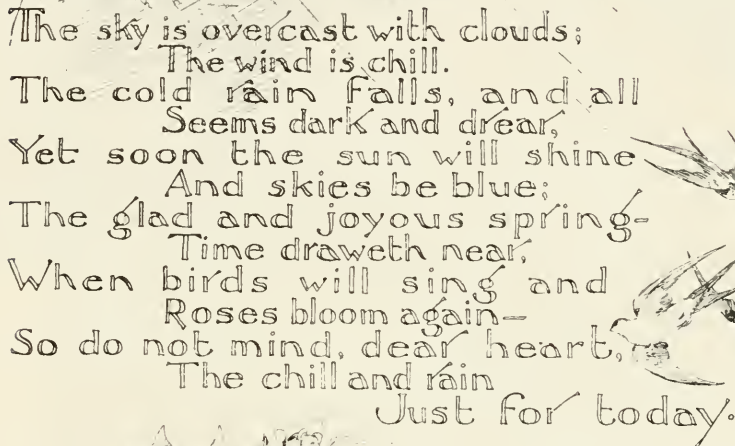 The sky is overcast with clouds;
The wind is chill.
The cold rain falls, and all
Seems dark and drear,
Yet soon the sun will shine
And skies be blue;
The glad and joyous spring-
Time draweth near,
When birds will sing and
Roses bloom again—
So do not mind, dear heart,
The chill and rain
Just for today.